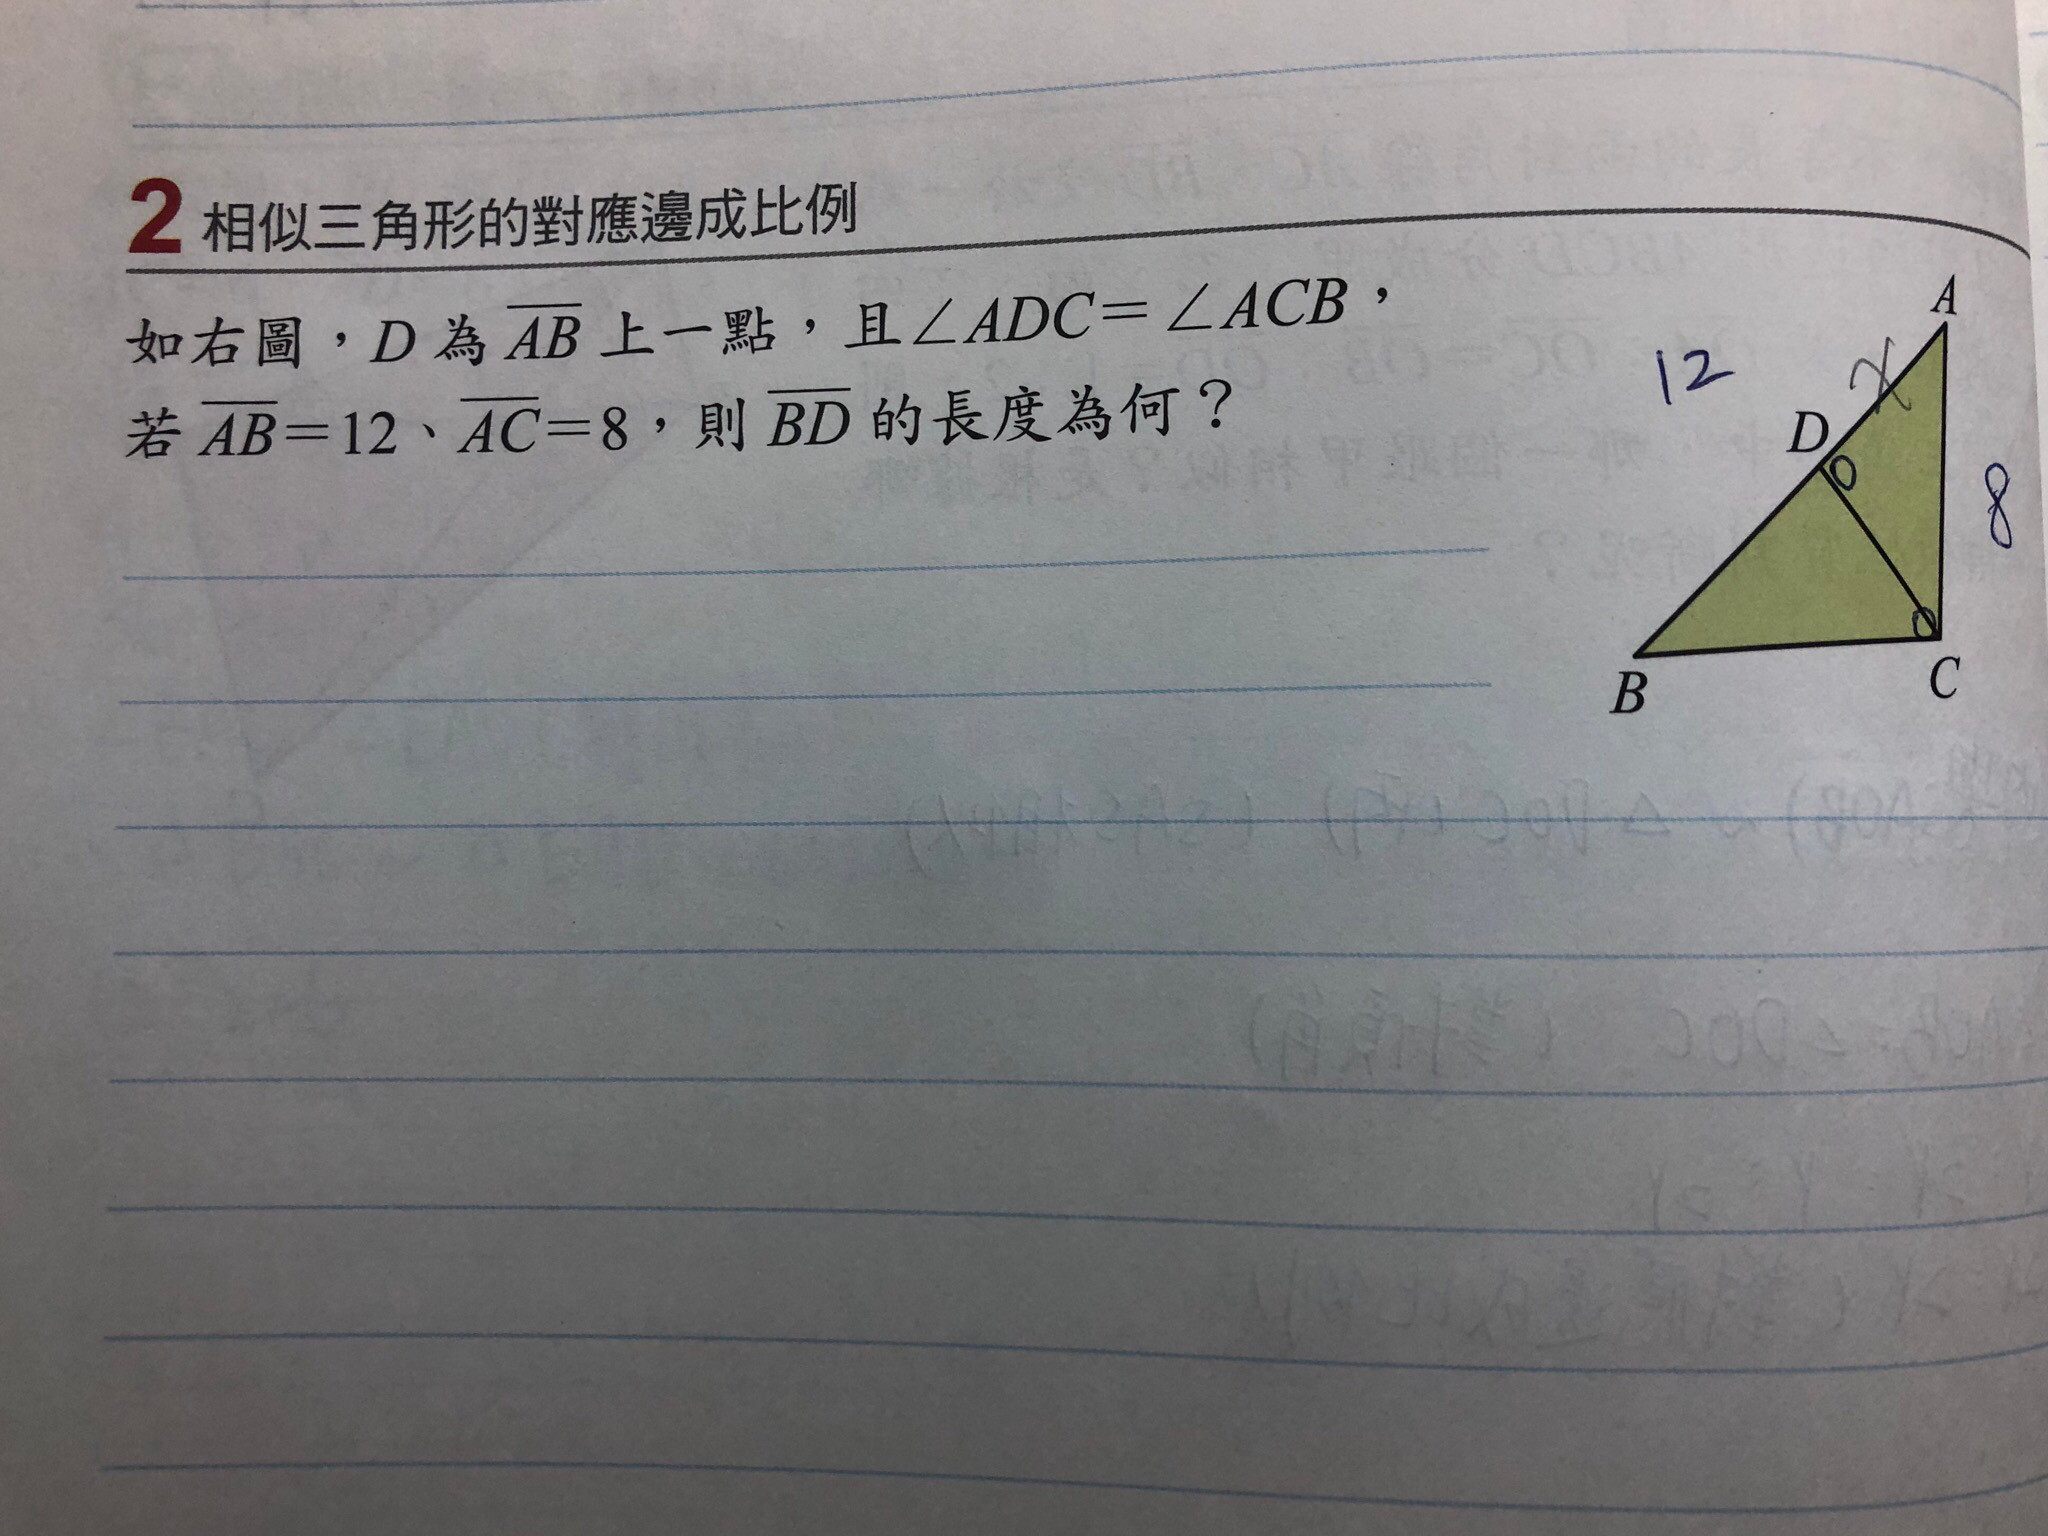 2 相似三角形的對應邊成比例
如右圖，D 為 AB 上一點，且∠ADC=∠ACB，
若 AB=12、AC=8，則 BD 的長度為何？
A
12
x
D
8
B
C